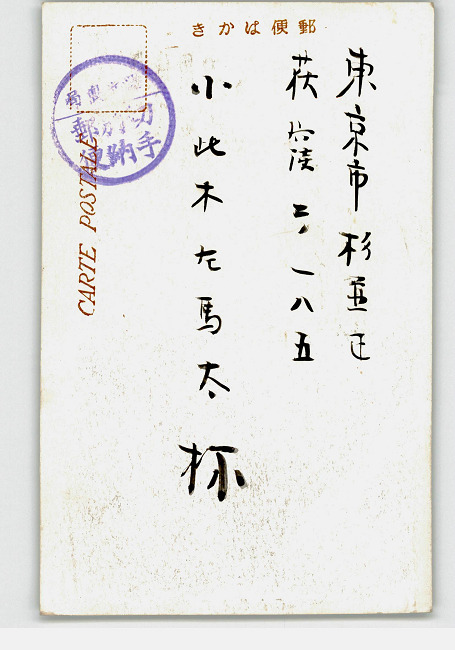 郵便はかき
東京市杉並区
荻窪二ノ一八五
小此木左馬太様
CARTE POSTALE